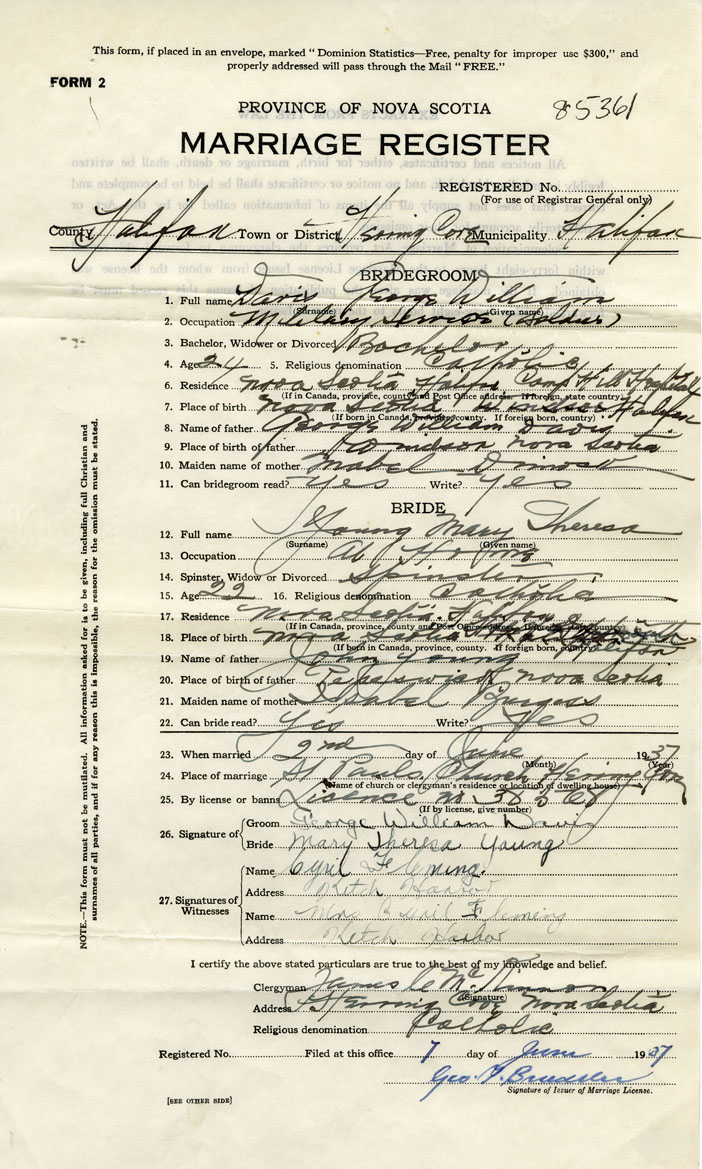 This form, if placed in an envelope, marked "Dominion Statistics—Free, penalty for improper use $300," and
properly addressed will pass through the Mail "FREE."
FORM 2
PROVINCE OF NOVA SCOTIA 85361
MARRIAGE REGISTER
REGISTERED No.
(For use of Registrar General only)
County Halifax Town or District Herring Cove Municipality Halifax
BRIDEGROOM
1. Full name Davis George William
(Surname) (Given name)
2. Occupation Military Service (Soldier)
3. Bachelor, Widower or Divorced Bachelor
4. Age 24 5. Religious denomination Catholic
6. Residence Nova Scotia Halifax Camp Hill Hospital
(If in Canada, province, county and Post Office address. If foreign, state country)
7. Place of birth Nova Scotia Windsor Halifax
(If born in Canada, province, county. If foreign born, country)
8. Name of father George William Davis
9. Place of birth of father Windsor Nova Scotia
10. Maiden name of mother Mabel
11. Can bridegroom read? Yes Write? Yes
BRIDE
12. Full name Young Mary Theresa
(Surname) (Given name)
13. Occupation At Home
14. Spinster, Widow or Divorced Spinster
15. Age 22 16. Religious denomination Catholic
17. Residence Nova Scotia Halifax
(If in Canada, province, county and Post Office address. If foreign, state country)
18. Place of birth Nova Scotia Halifax
(If born in Canada, province, county. If foreign born, country)
19. Name of father John Young
20. Place of birth of father Nova Scotia
21. Maiden name of mother Isabel Burgess
22. Can bride read? Yes Write? Yes
23. When married 2nd day of June 1937
(Month) (Year)
24. Place of marriage St Pauls Church Herring Cove
(Name of church or clergyman's residence or location of dwelling house)
25. By license or banns Licence No
(If by license, give number)
26. Signature of Groom George William Davis
Bride Mary Theresa Young
27. Signatures of Witnesses
Name Cyril Fleming.
Address Ketch Harbor
Name Mrs Cyril Fleming
Address Ketch Harbor
I certify the above stated particulars are true to the best of my knowledge and belief.
Clergyman James C McKinnon
(Signature)
Address Herring Cove Nova Scotia
Religious denomination Catholic
Registered No. Filed at this office 7 day of June 1937
Geo.
Signature of Issuer of Marriage License.
[SEE OTHER SIDE]
NOTE.—This form must not be mutilated. All information asked for is to be given, including full Christian and
surnames of all parties, and if for any reason this is impossible, the reason for the omission must be stated.